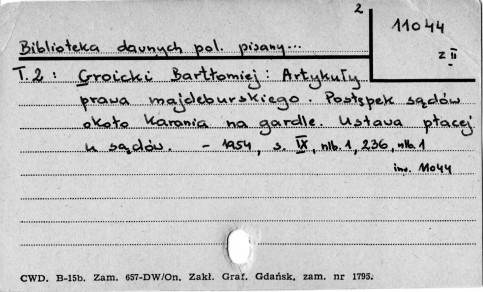 2
11044
z II
Biblioteka dawnych pol. pisarzy...
T.2: Groicki Bartłomiej: Artykuły
prawa majdeburskiego. Postępek sądów
około karania na gardle. Ustawa płacej
u sądów. - 1954, s. IX, nlb. 1, 236, nlb. 1
inw. 11044
CWD. B-15b. Zam. 657-DW/On. Zakł. Graf. Gdańsk, zam. nr 1795.